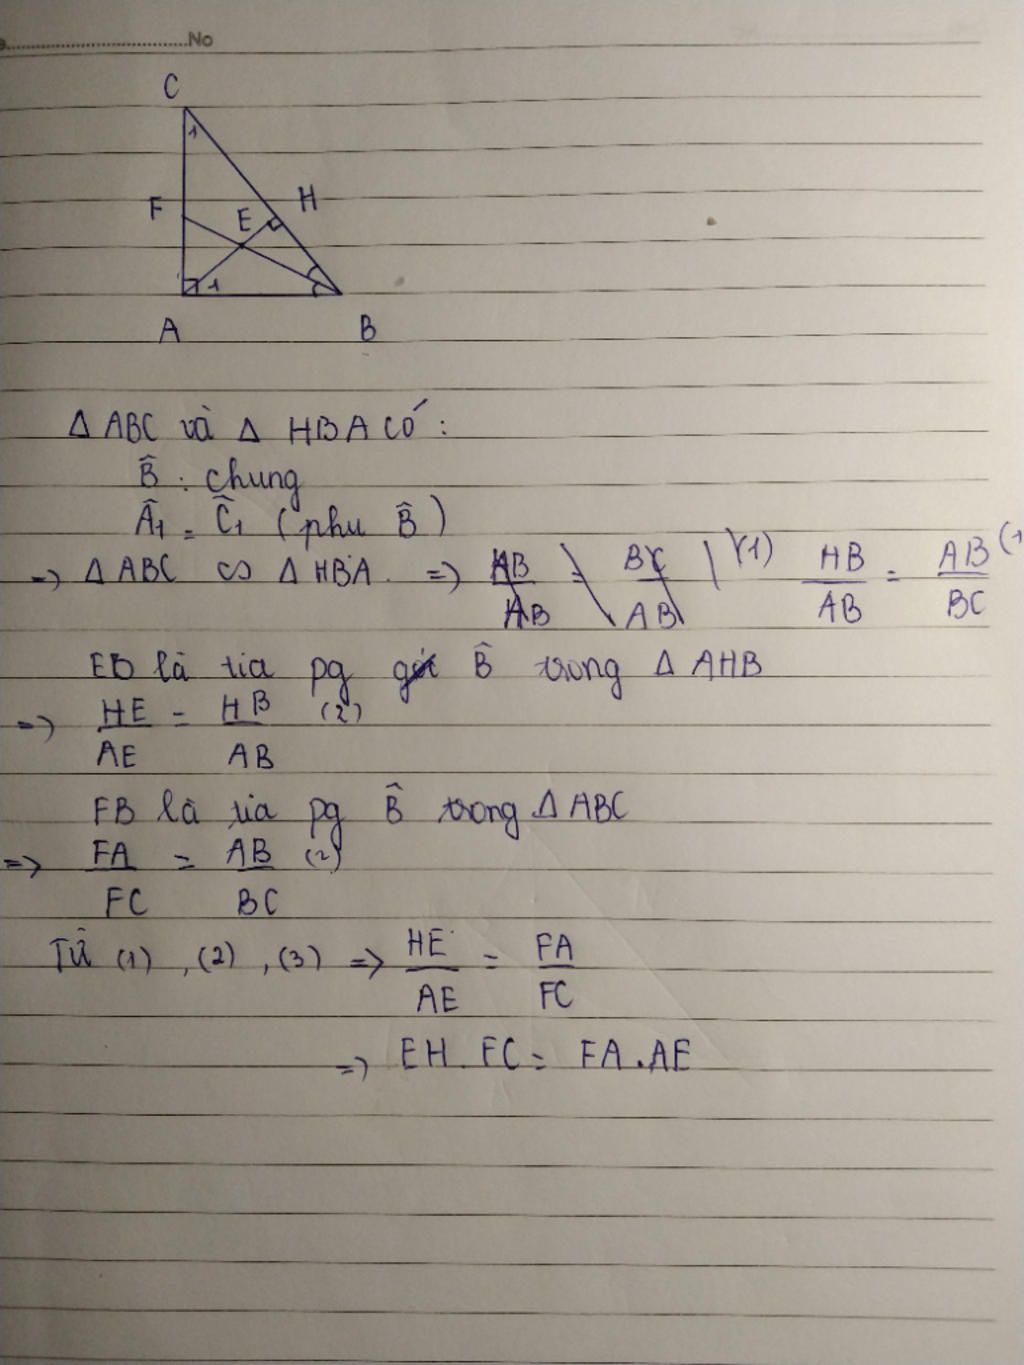 No
C
1
F
E
H
1
A
B
Δ ABC và Δ HBA có:
B̂ : chung
Â1 = Ĉ1 (phụ B̂)
=> Δ ABC ∽ Δ HBA => AB/HB = BC/AB (1) HB/AB = AB/BC (1
EB là tia pg góc B̂ trong Δ AHB
=> HE/AE = HB/AB (2)
FB là tia pg B̂ trong Δ ABC
=> FA/FC = AB/BC (2)
Từ (1) , (2) , (3) => HE/AE = FA/FC
=> EH . FC = FA . AE